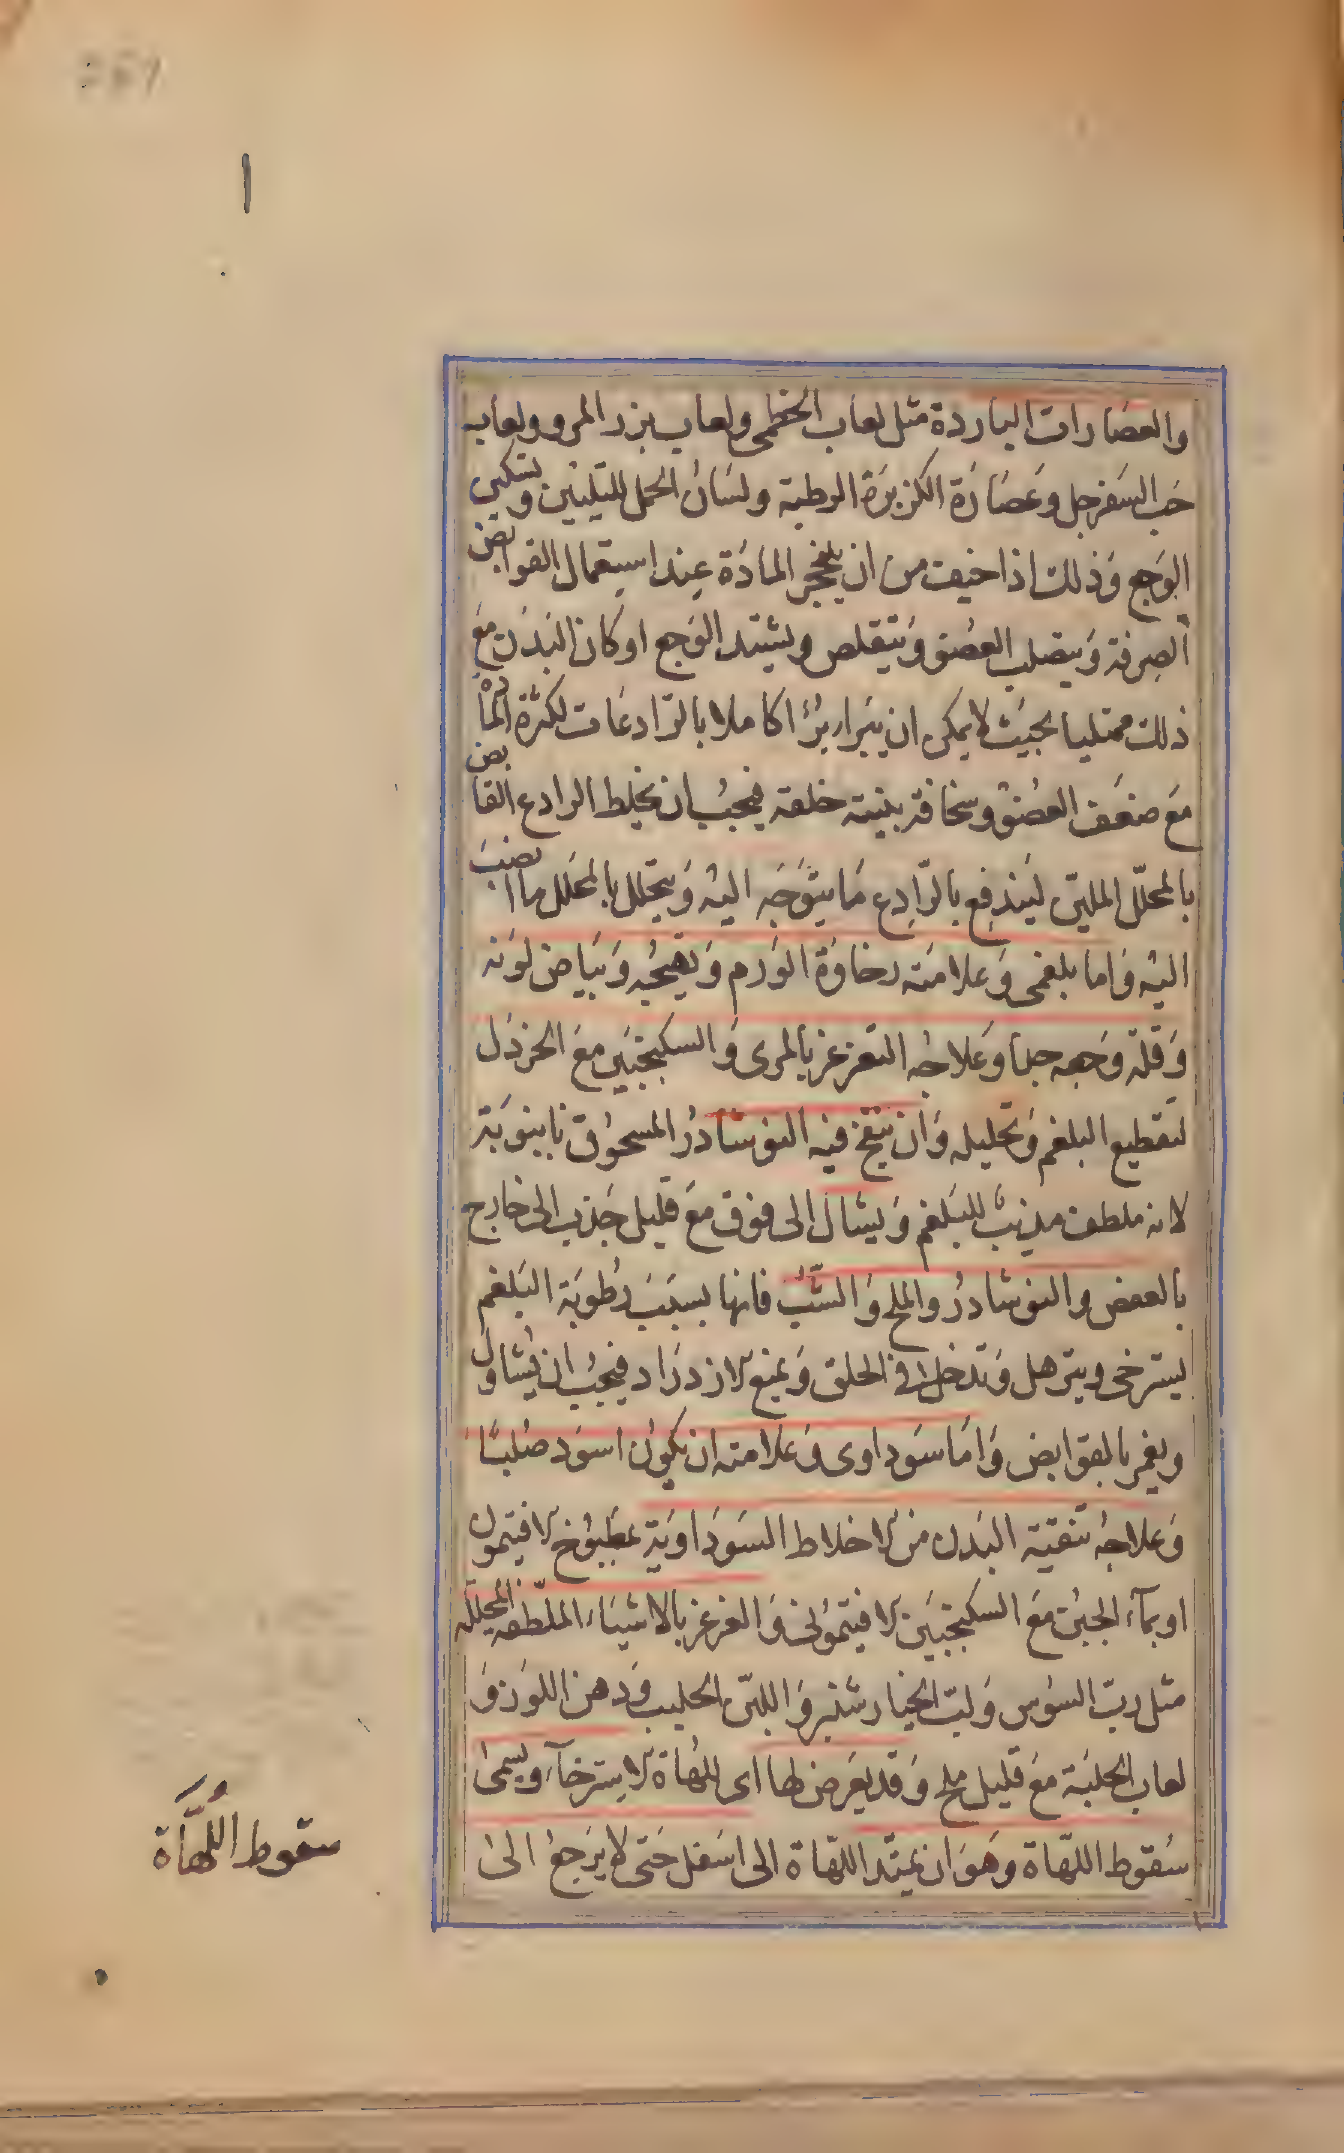 والعصارات الباردة مثل لعاب الخطمى ولعاب بزر المرو ولعاب
حَب السَفرجل وعَصَارَة الكزبرَة الرطبة ولسَان الحمل للتليين وتسكين
الوَجع وَذلك اذا خيف من ان يتحجر المادَة عِند استعمال القوابض
الصِرفة وَيتصلب العضو وَيتقلص ويشتد الوَجع او كان البَدن مَعَ
ذلك ممتليا بحيث لا يمكن ان يبَرا برُا كاملا بالرّادعَات لكثرة المادة
مَع ضعَف العُضو وسخافة بنيته خلقة فيجبُ ان يخلط الرادع القابض
بالمحلّل المليّن ليَندفِع بالرّادِع مَا يتوَجَه اليه وَيتحلل بالمحَلل ما انصَبَ
اليه وَاما بلغمى وَعلامَته رخاوَة الوَرم وَتهيجُه وَبيَاض لوَنه
وَقلة وَجعه جدا وَعلاجُه التغرغر بالمرى وَالسكنجبَين معَ الخردَل
لتقطيع البلغم وَتحليله وَان ينفخ فيه النوشادرُ المسحوُق بانبوبَة
لانه ملطف مذيبٌ للبَلغم وَيشال الى فوق معَ قليل جَذب الى خارج
بالعفص والنوشادرُ والملح وَالشَّبّ فانها بسبَبَ رطُوبَة البَلغم
يسترخى ويترهل وَتدخل فى الحلق وَيمنع الازدرَاد فيجبُ ان يُشال و
ويغمر بالقوابض وَامَا سَوداوى وَعلامته ان يكوُن اسوَد صُلبًا
وَعلاجهُ تنقية البَدن منَ الاخلاط السَودَاويَة بمطبوُخ الافتيمون
او بمآء الجبُن مَعَ السكنجبَين الافتيموُنى وَالغرغر بالاشيَاء الملّطفه المحللّه
مثل ربّ السوُس وَلبّ الخيارشنبر وَاللبن الحليب وَدهن اللوز وَ
لعاب الحُلبَة مَعَ قليل ملح وَقد يَعرَض لها اى للهُاة الاسِترخآء وَيسمىٰ
سُقوط اللهّاة وهَوَ ان يمتدّ اللهّاة الى اسَفل حَتى لا يَرَجعُ الىٰ
سقوط اللُهَّاة